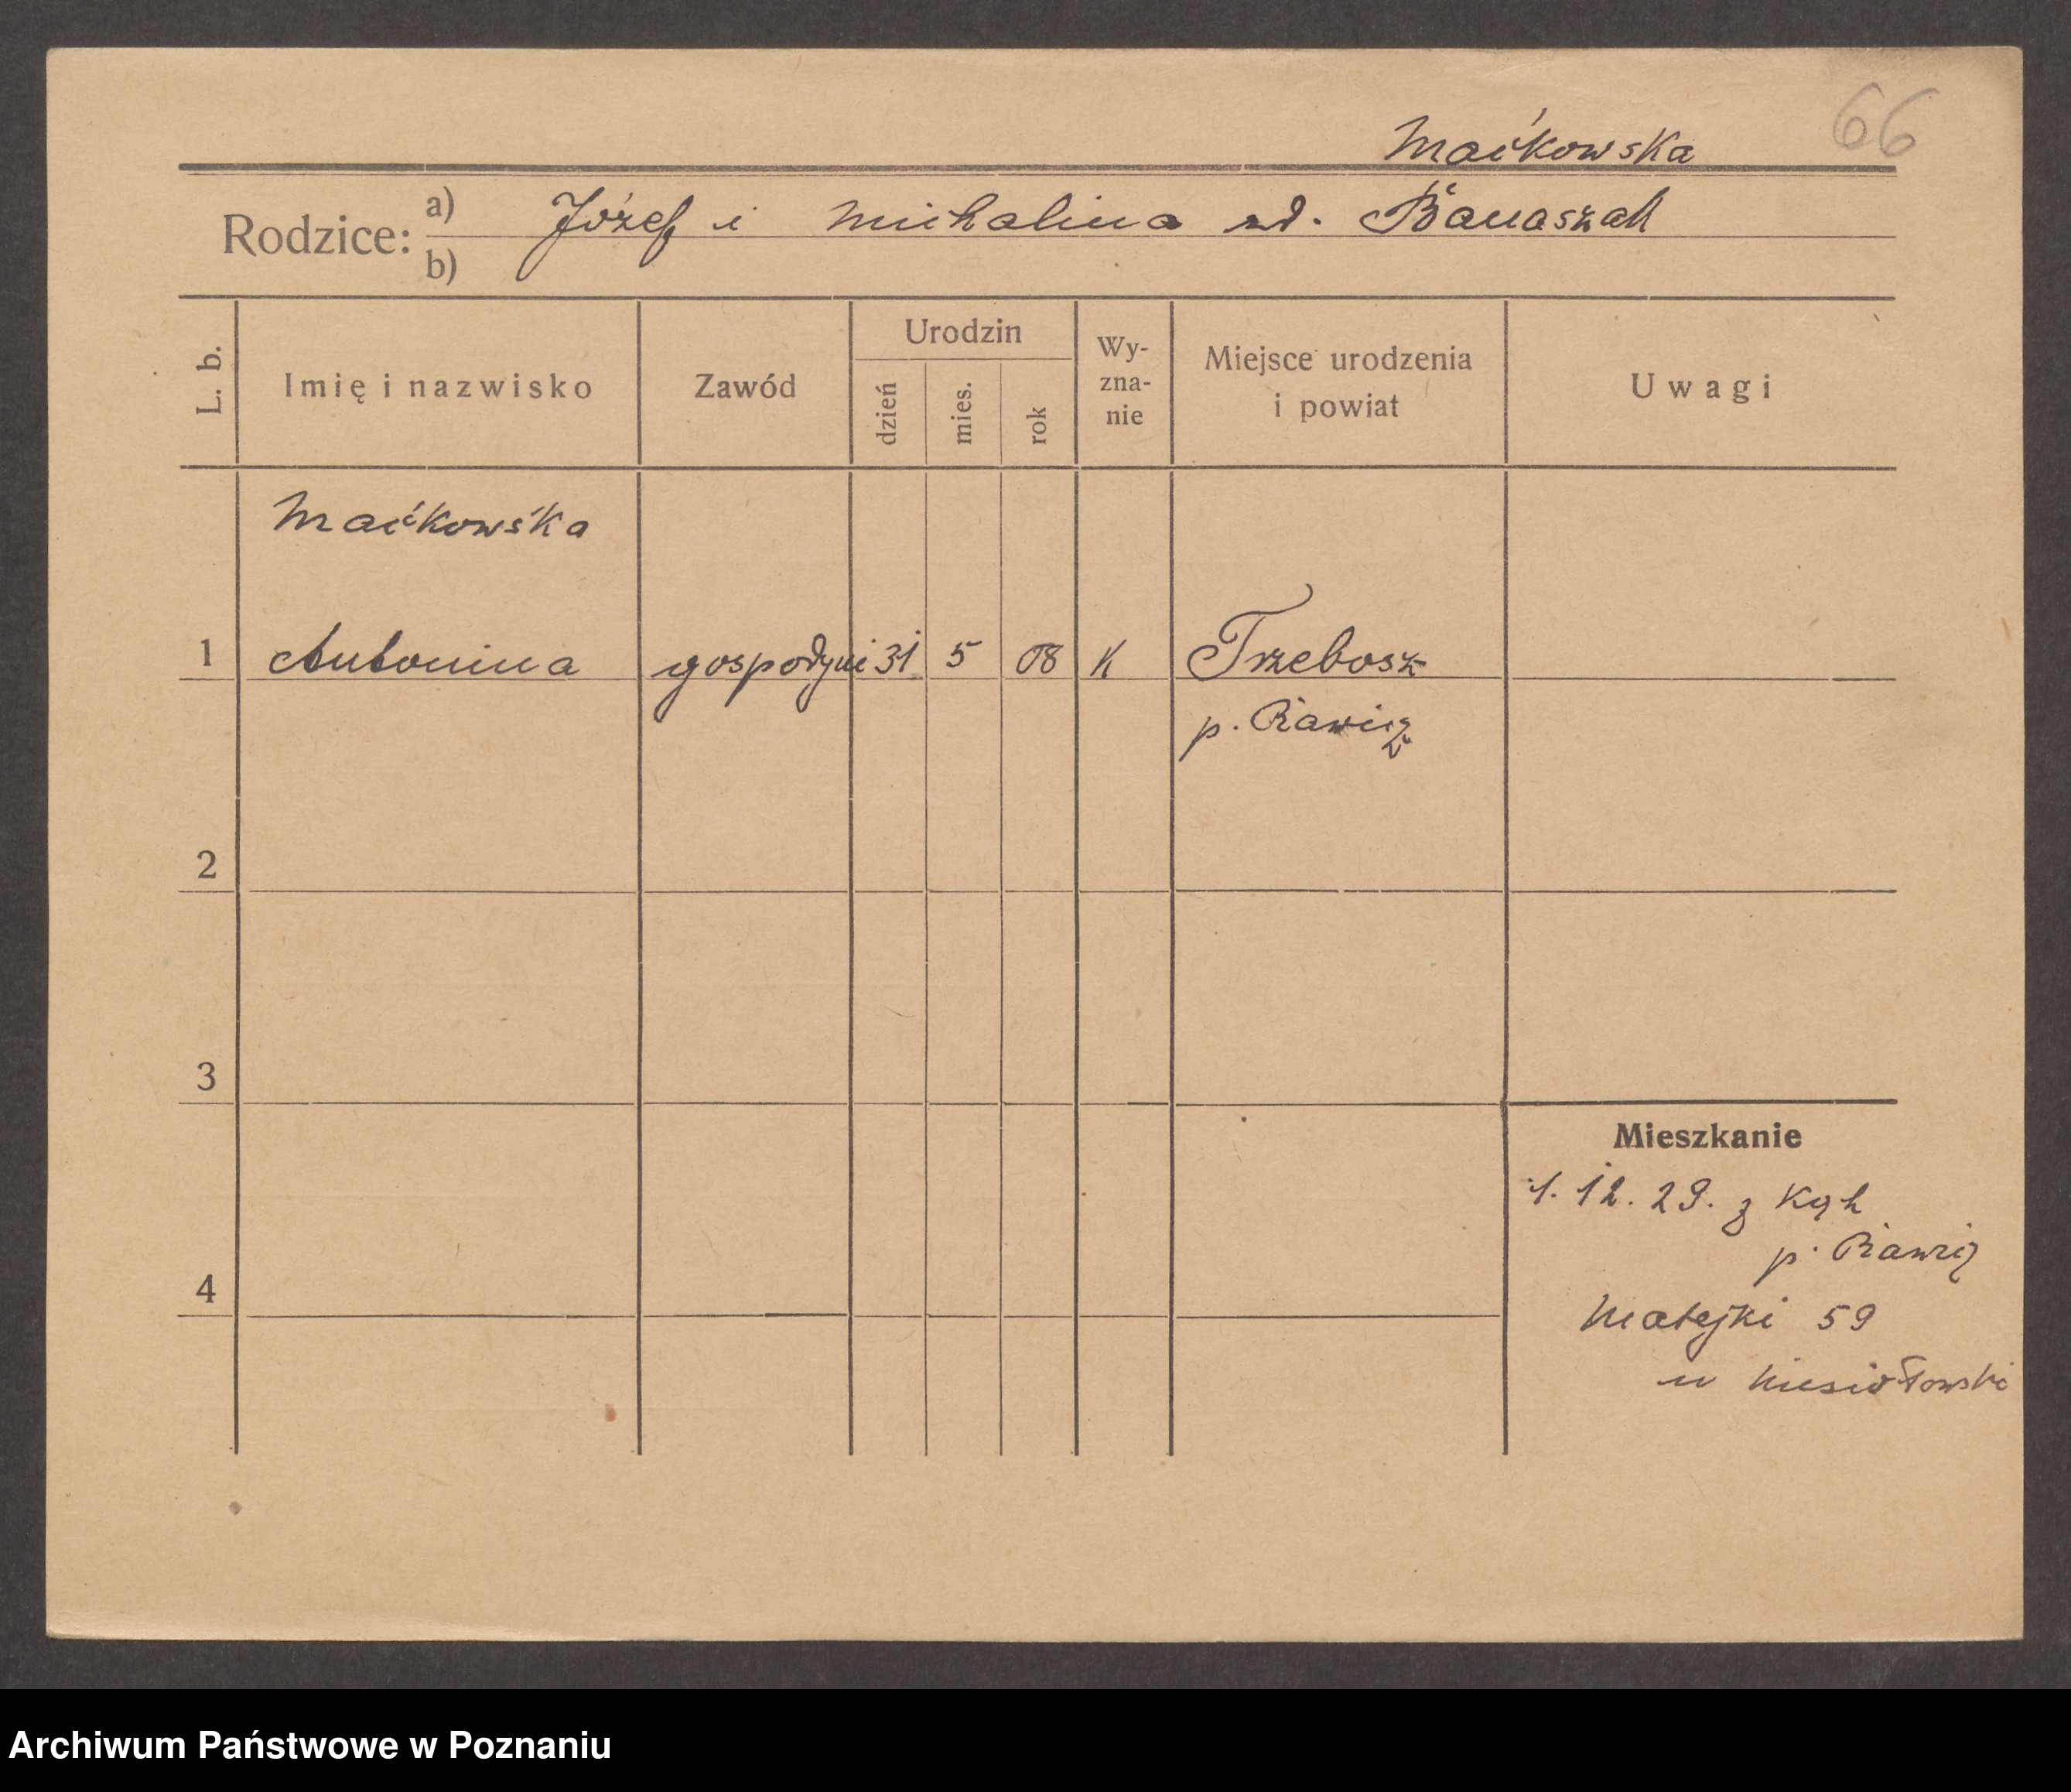 66
Maćkowska
Rodzice: a) Józef i Michalina zd. Banaszak
b)
L. b.
Imię i nazwisko
Zawód
Urodzin
dzień
mies.
rok
Wy-
zna-
nie
Miejsce urodzenia
i powiat
Uwagi
Maćkowska
1 Antonina gospodyni 31 5 08 K Trzebosz
p. Rawicz
2
3
Mieszkanie
1. 12. 29. z Kąk
p. Rawicz
4
Matejki 59
u Niesiołowski
Archiwum Państwowe w Poznaniu